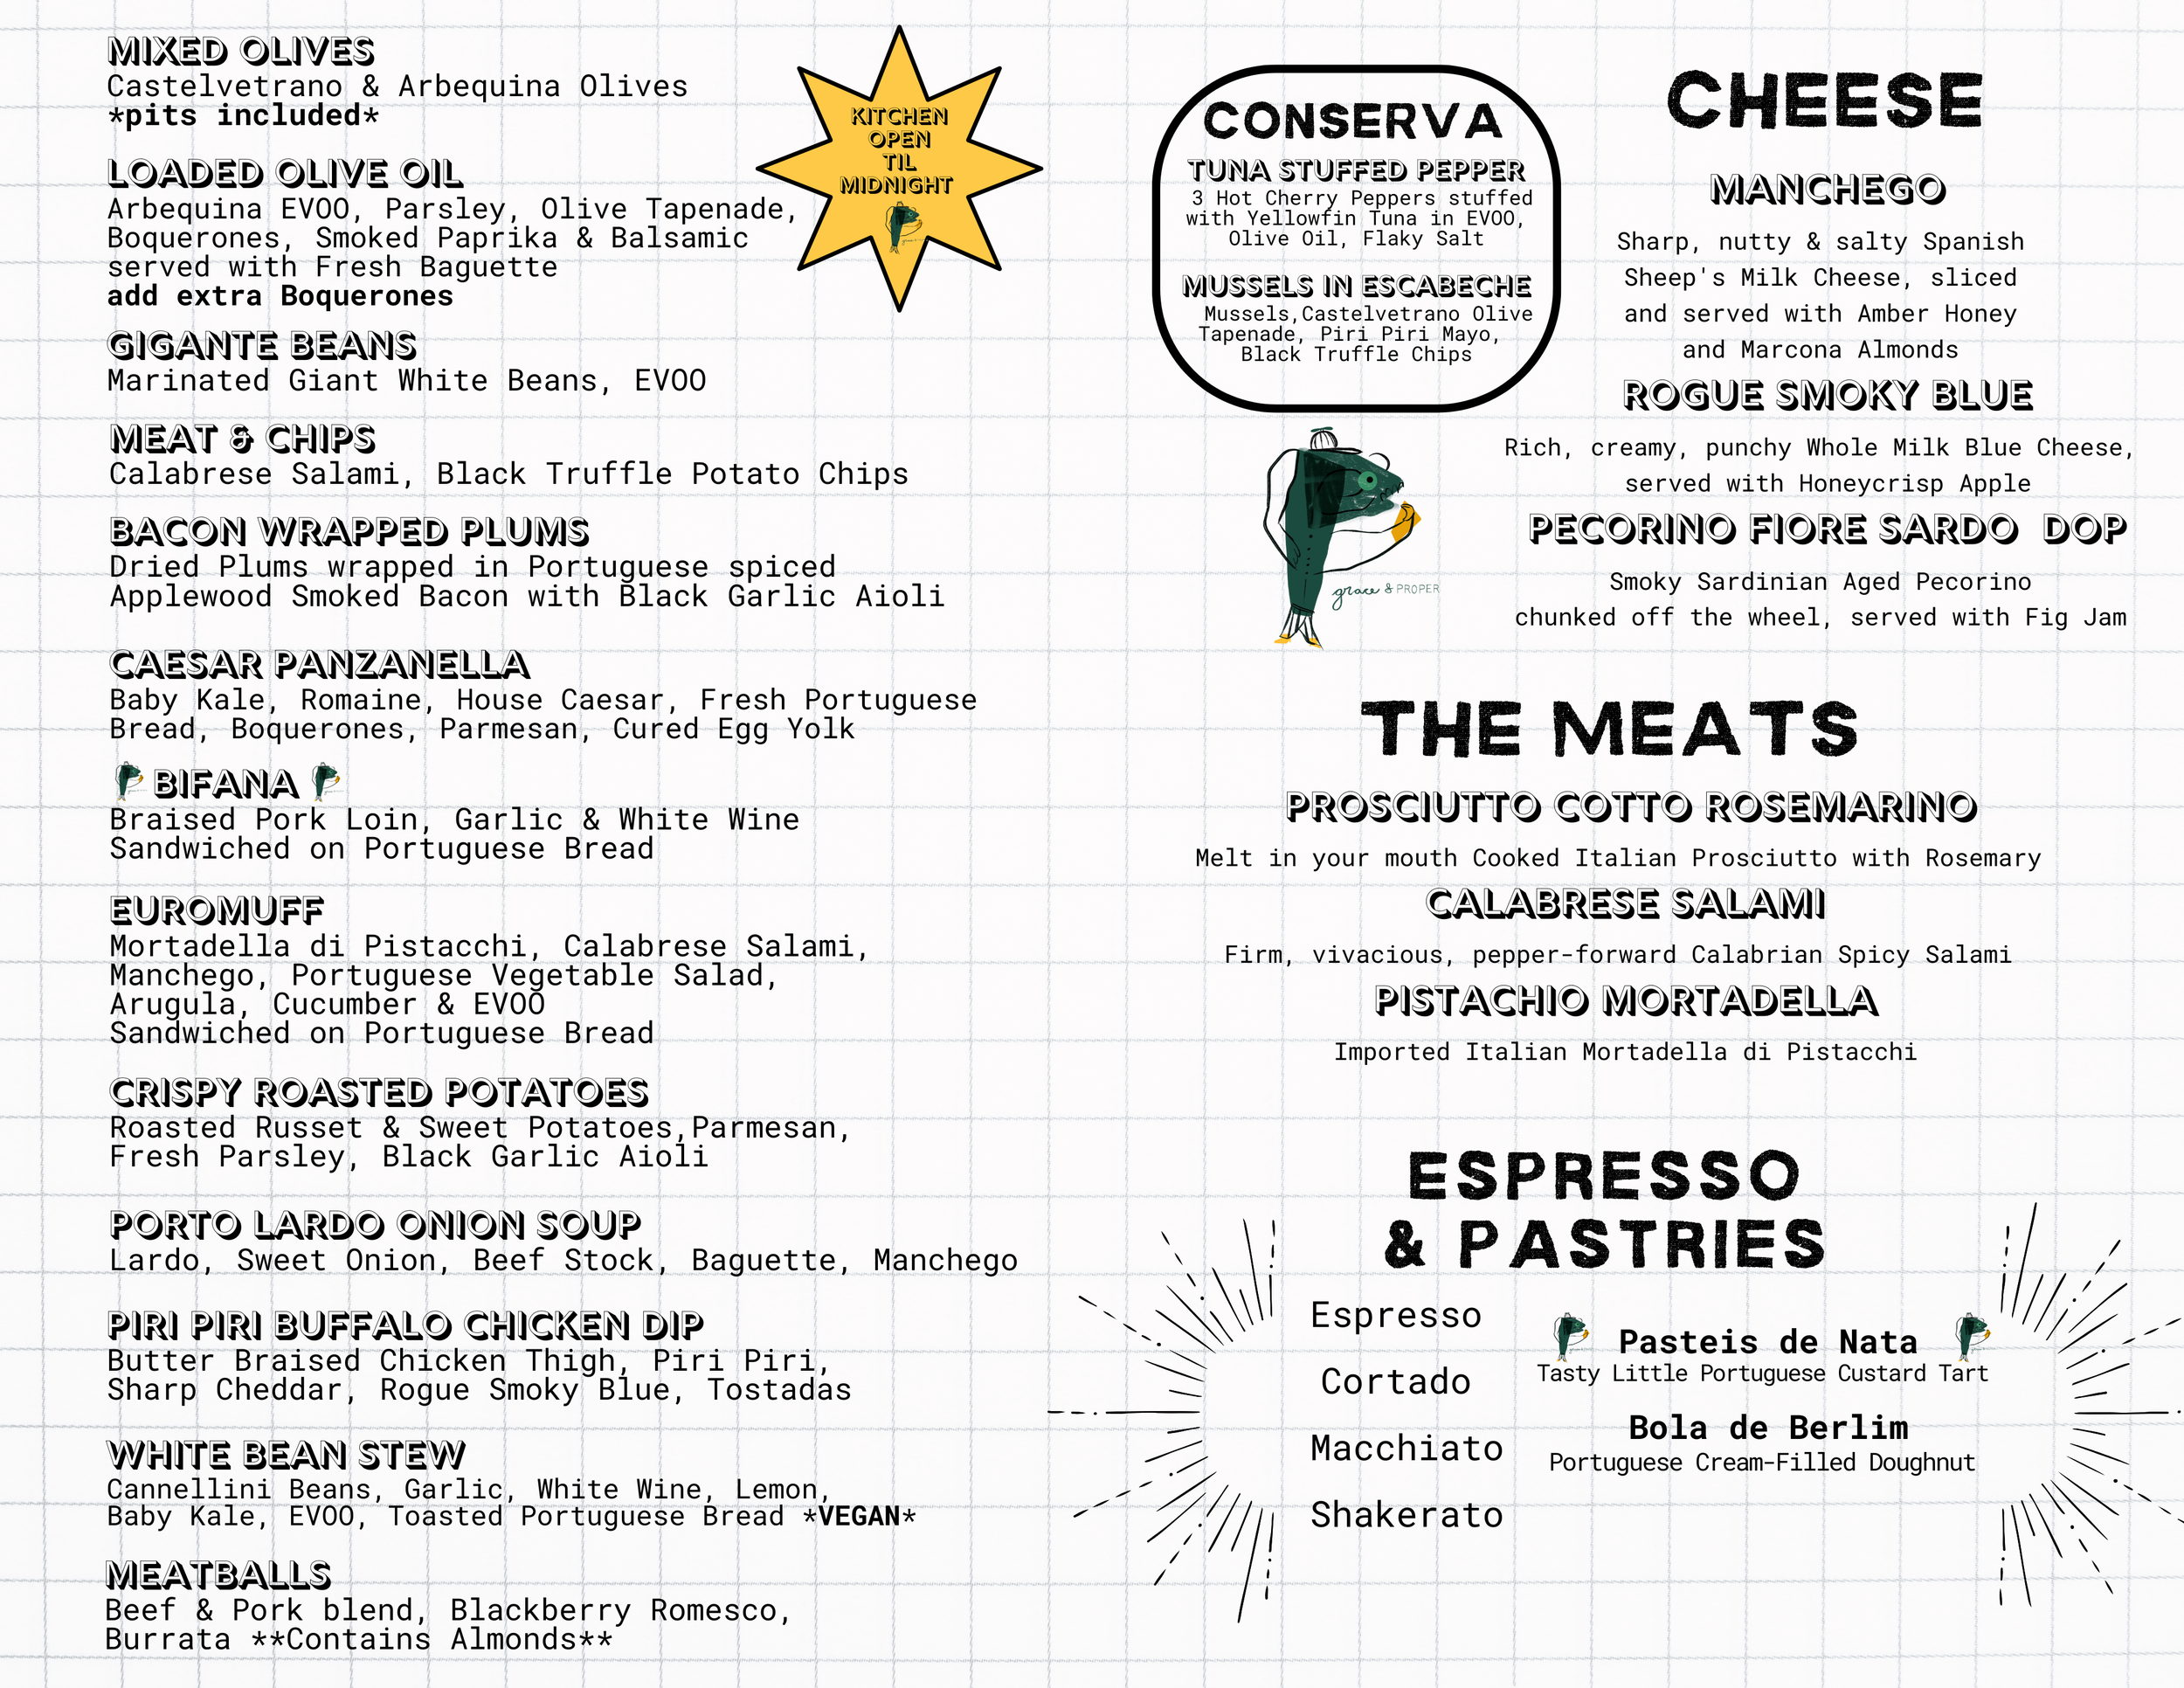 MIXED OLIVES
Castelvetrano & Arbequina Olives
*pits included*
LOADED OLIVE OIL
Arbequina EVOO, Parsley, Olive Tapenade,
Boquerones, Smoked Paprika & Balsamic
served with Fresh Baguette
add extra Boquerones
GIGANTE BEANS
Marinated Giant White Beans, EVOO
MEAT & CHIPS
Calabrese Salami, Black Truffle Potato Chips
BACON WRAPPED PLUMS
Dried Plums wrapped in Portuguese spiced
Applewood Smoked Bacon with Black Garlic Aioli
CAESAR PANZANELLA
Baby Kale, Romaine, House Caesar, Fresh Portuguese
Bread, Boquerones, Parmesan, Cured Egg Yolk
BIFANA
Braised Pork Loin, Garlic & White Wine
Sandwiched on Portuguese Bread
EUROMUFF
Mortadella di Pistacchi, Calabrese Salami,
Manchego, Portuguese Vegetable Salad,
Arugula, Cucumber & EVOO
Sandwiched on Portuguese Bread
CRISPY ROASTED POTATOES
Roasted Russet & Sweet Potatoes,Parmesan,
Fresh Parsley, Black Garlic Aioli
PORTO LARDO ONION SOUP
Lardo, Sweet Onion, Beef Stock, Baguette, Manchego
PIRI PIRI BUFFALO CHICKEN DIP
Butter Braised Chicken Thigh, Piri Piri,
Sharp Cheddar, Rogue Smoky Blue, Tostadas
WHITE BEAN STEW
Cannellini Beans, Garlic, White Wine, Lemon,
Baby Kale, EVOO, Toasted Portuguese Bread *VEGAN*
MEATBALLS
Beef & Pork blend, Blackberry Romesco,
Burrata **Contains Almonds**
KITCHEN
OPEN
TIL
MIDNIGHT
CONSERVA
TUNA STUFFED PEPPER
3 Hot Cherry Peppers stuffed
with Yellowfin Tuna in EVOO,
Olive Oil, Flaky Salt
MUSSELS IN ESCABECHE
Mussels,Castelvetrano Olive
Tapenade, Piri Piri Mayo,
Black Truffle Chips
grace & PROPER
CHEESE
MANCHEGO
Sharp, nutty & salty Spanish
Sheep's Milk Cheese, sliced
and served with Amber Honey
and Marcona Almonds
ROGUE SMOKY BLUE
Rich, creamy, punchy Whole Milk Blue Cheese,
served with Honeycrisp Apple
PECORINO FIORE SARDO DOP
Smoky Sardinian Aged Pecorino
chunked off the wheel, served with Fig Jam
THE MEATS
PROSCIUTTO COTTO ROSEMARINO
Melt in your mouth Cooked Italian Prosciutto with Rosemary
CALABRESE SALAMI
Firm, vivacious, pepper-forward Calabrian Spicy Salami
PISTACHIO MORTADELLA
Imported Italian Mortadella di Pistacchi
ESPRESSO
& PASTRIES
Espresso
Cortado
Macchiato
Shakerato
Pasteis de Nata
Tasty Little Portuguese Custard Tart
Bola de Berlim
Portuguese Cream-Filled Doughnut